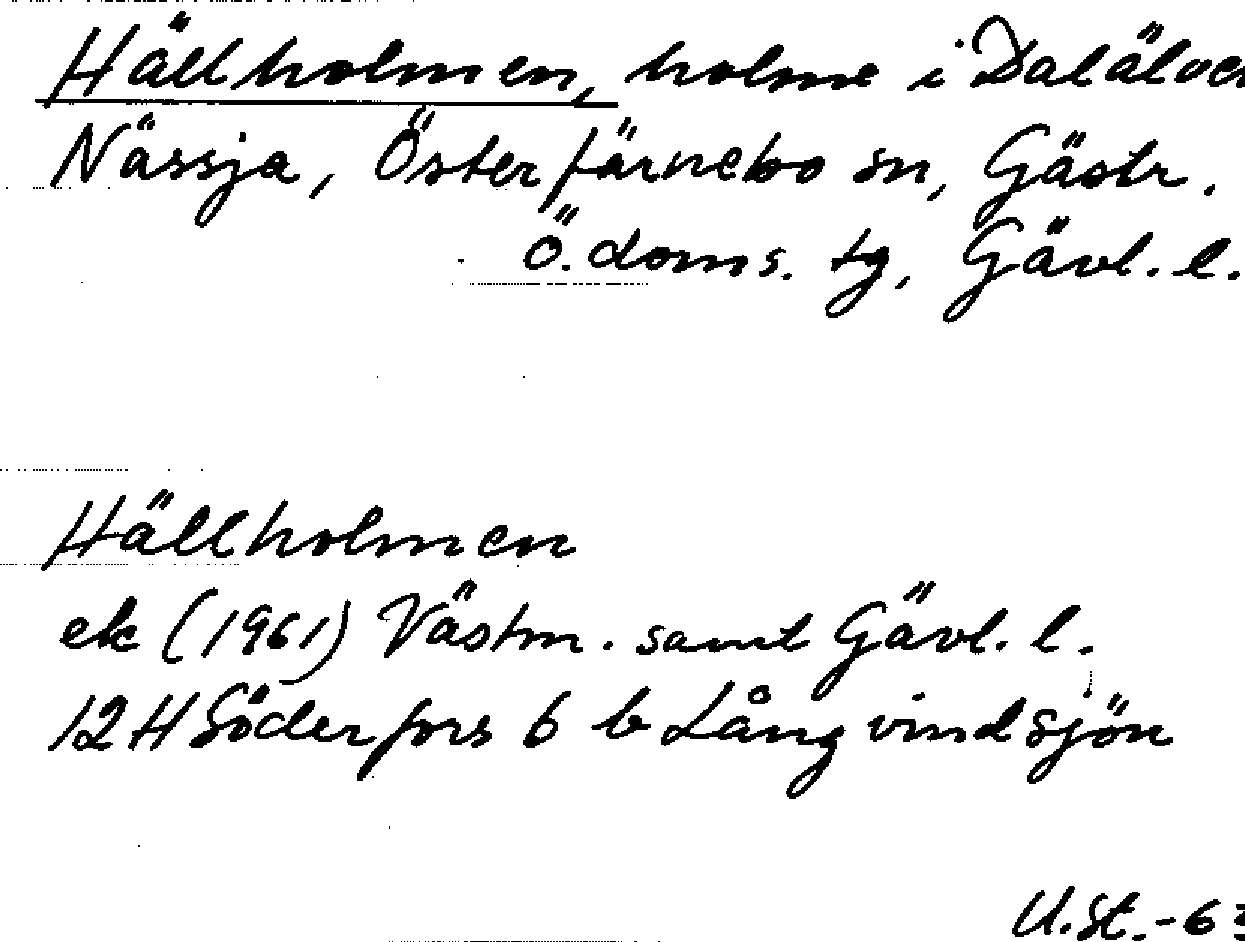 Hällholmen, holme i Dalälven
Nässja, Österfärnebo sn, Gästr.
Ö. doms. tg, Gävl. l.
Hällholmen
ek (1961) Västm. samt Gävl. l.
12 H Söderfors 6 b Långvindsjön
U.St.-63